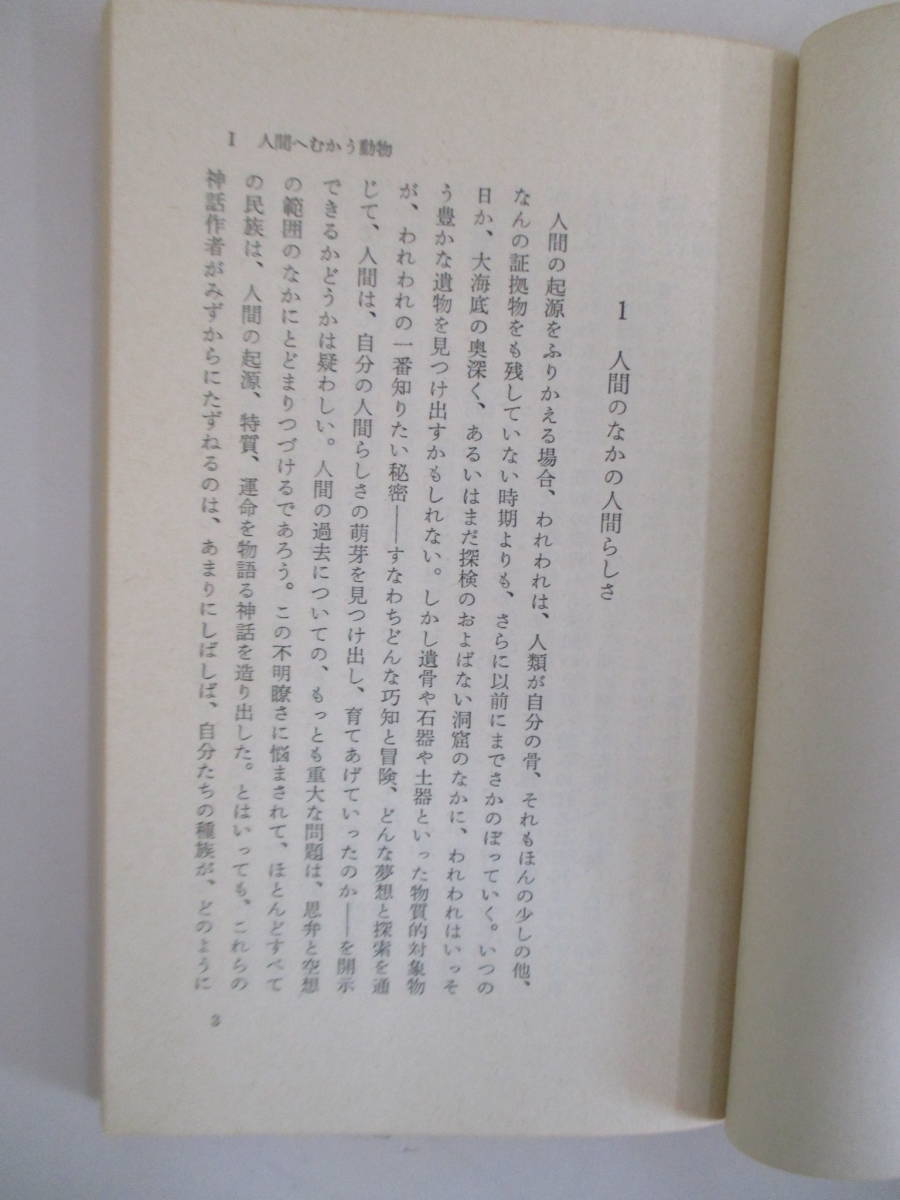 Ⅰ 人間へむかう動物
1 人間のなかの人間らしさ
人間の起源をふりかえる場合、われわれは、人類が自分の骨、それもほんの少しの他、
なんの証拠物をも残していない時期よりも、さらに以前にまでさかのぼっていく。いつの
日か、大海底の奥深く、あるいはまだ探検のおよばない洞窟のなかに、われわれはいっそ
う豊かな遺物を見つけ出すかもしれない。しかし遺骨や石器や土器といった物質的対象物
が、われわれの一番知りたい秘密――すなわちどんな巧知と冒険、どんな夢想と探索を通
じて、人間は、自分の人間らしさの萌芽を見つけ出し、育てあげていったのか――を開示
できるかどうかは疑わしい。人間の過去についての、もっとも重大な問題は、思弁と空想
の範囲のなかにとどまりつづけるであろう。この不明瞭さに悩まされて、ほとんどすべて
の民族は、人間の起源、特質、運命を物語る神話を造り出した。とはいっても、これらの
神話作者がみずからにたずねるのは、あまりにしばしば、自分たちの種族が、どのように
3